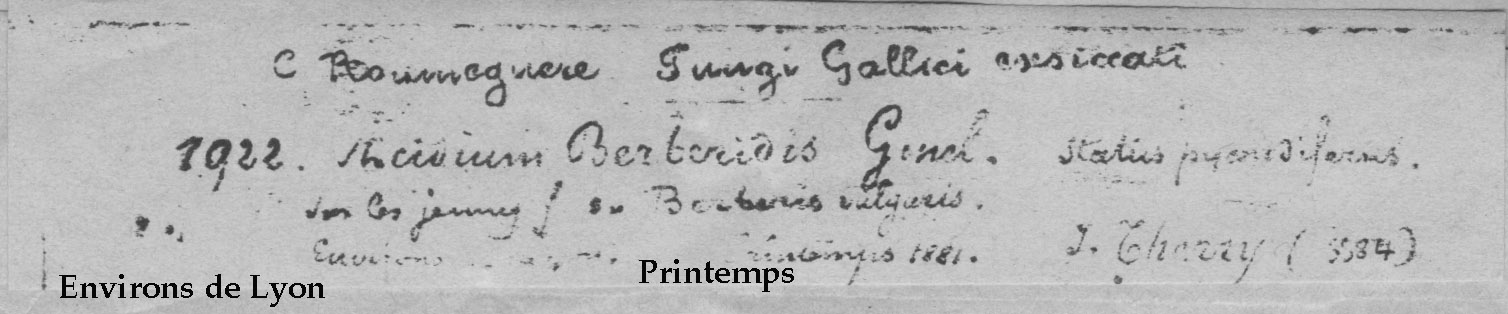 C Roumeguere Fungi Gallici exsiccati
1922. Æcidium Berberidis Gmel. Status pycnidiferus.
sur les jeunes f. de Berberis vulgaris.
Environs Printemps 1881. J. Therry (5584)
Environs de Lyon
Printemps